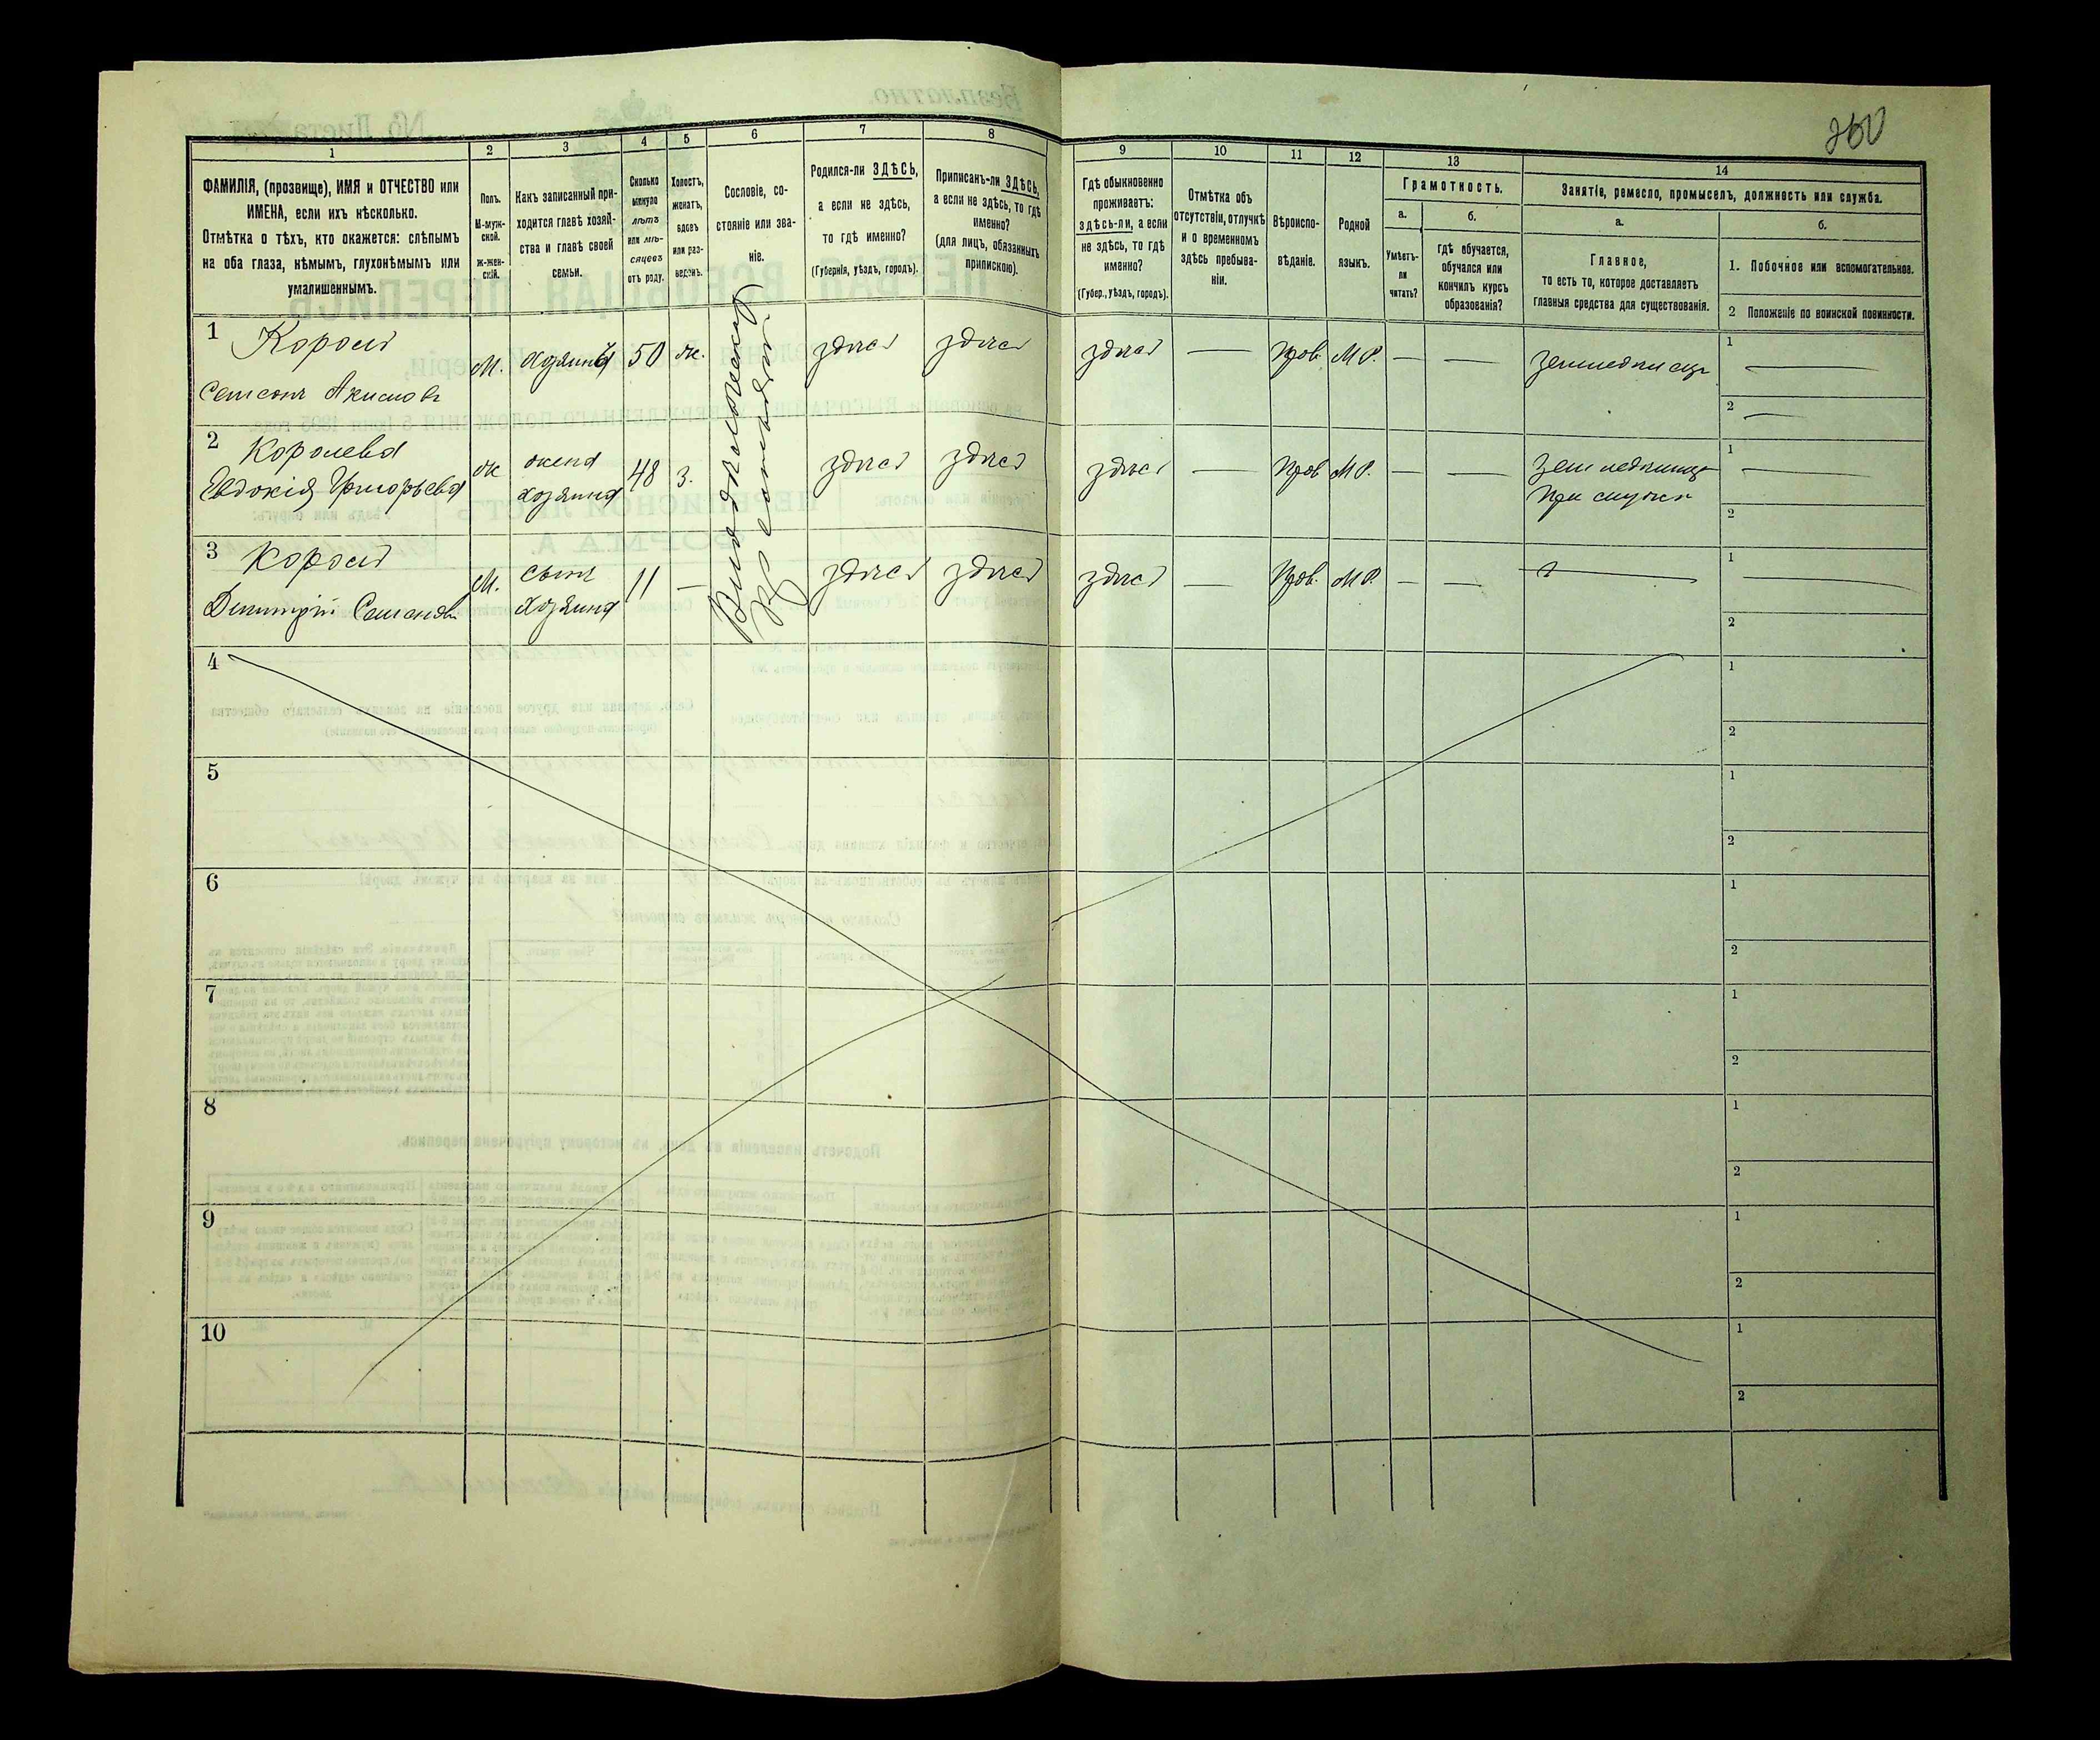 260
1
2
3
4
5
6
7
8
9
10
11
12
13
14
ФАМИЛІЯ, (прозвище), ИМЯ и ОТЧЕСТВО или
ИМЕНА, если ихъ нѣсколько.
Отмѣтка о тѣхъ, кто окажется: слѣпымъ
на оба глаза, нѣмымъ, глухонѣмымъ или
умалишеннымъ.
Полъ.
М-муж-
ской.
ж-жен-
скій.
Какъ записанный при-
ходится главѣ хозяй-
ства и главѣ своей
семьи.
Сколько
минуло
лѣтъ
или мѣ-
сяцевъ
отъ роду.
Холостъ,
женатъ,
вдовъ
или раз-
веденъ.
Сословіе, со-
стояніе или зва-
ніе.
Родился-ли ЗДѢСЬ,
а если не здѣсь,
то гдѣ именно?
(Губернія, уѣздъ, городъ).
Приписанъ-ли ЗДѢСЬ,
а если не здѣсь, то гдѣ
именно?
(для лицъ, обязанныхъ
припискою).
Гдѣ обыкновенно
проживаетъ:
здѣсь-ли, а если
не здѣсь, то гдѣ
именно?
(Губер., уѣздъ, городъ).
Отмѣтка объ
отсутствіи, отлучкѣ
и о временномъ
здѣсь пребыва-
ніи.
Вѣроиспо-
вѣданіе.
Родной
языкъ.
Грамотность.
а.
Умѣетъ-
ли
читать?
б.
гдѣ обучается,
обучался или
кончилъ курсъ
образованія?
Занятіе, ремесло, промыселъ, должность или служба.
а.
Главное,
то есть то, которое доставляетъ
главныя средства для существованія.
б.
1. Побочное или вспомогательное.
2 Положеніе по воинской повинности.
1 Король
Семенъ Акимовъ
М. хозяинъ 50 ж. здѣсь здѣсь здѣсь — Прав. М.Р. — — земледѣлецъ
1 —
2 —
2 Королева
Евдокія Григорьева
ж жена
хозяина
48 з. здѣсь здѣсь здѣсь — Прав М.Р. — — Земледѣлица
при мужѣ
1 —
2
3 Король
Димитрій Семеновъ
М. сынъ
хозяина
11 — здѣсь здѣсь здѣсь — Прав. М.Р. — —
1 —
2
4
1
2
5
1
2
6
1
2
7
1
2
8
1
2
9
1
2
10
1
2